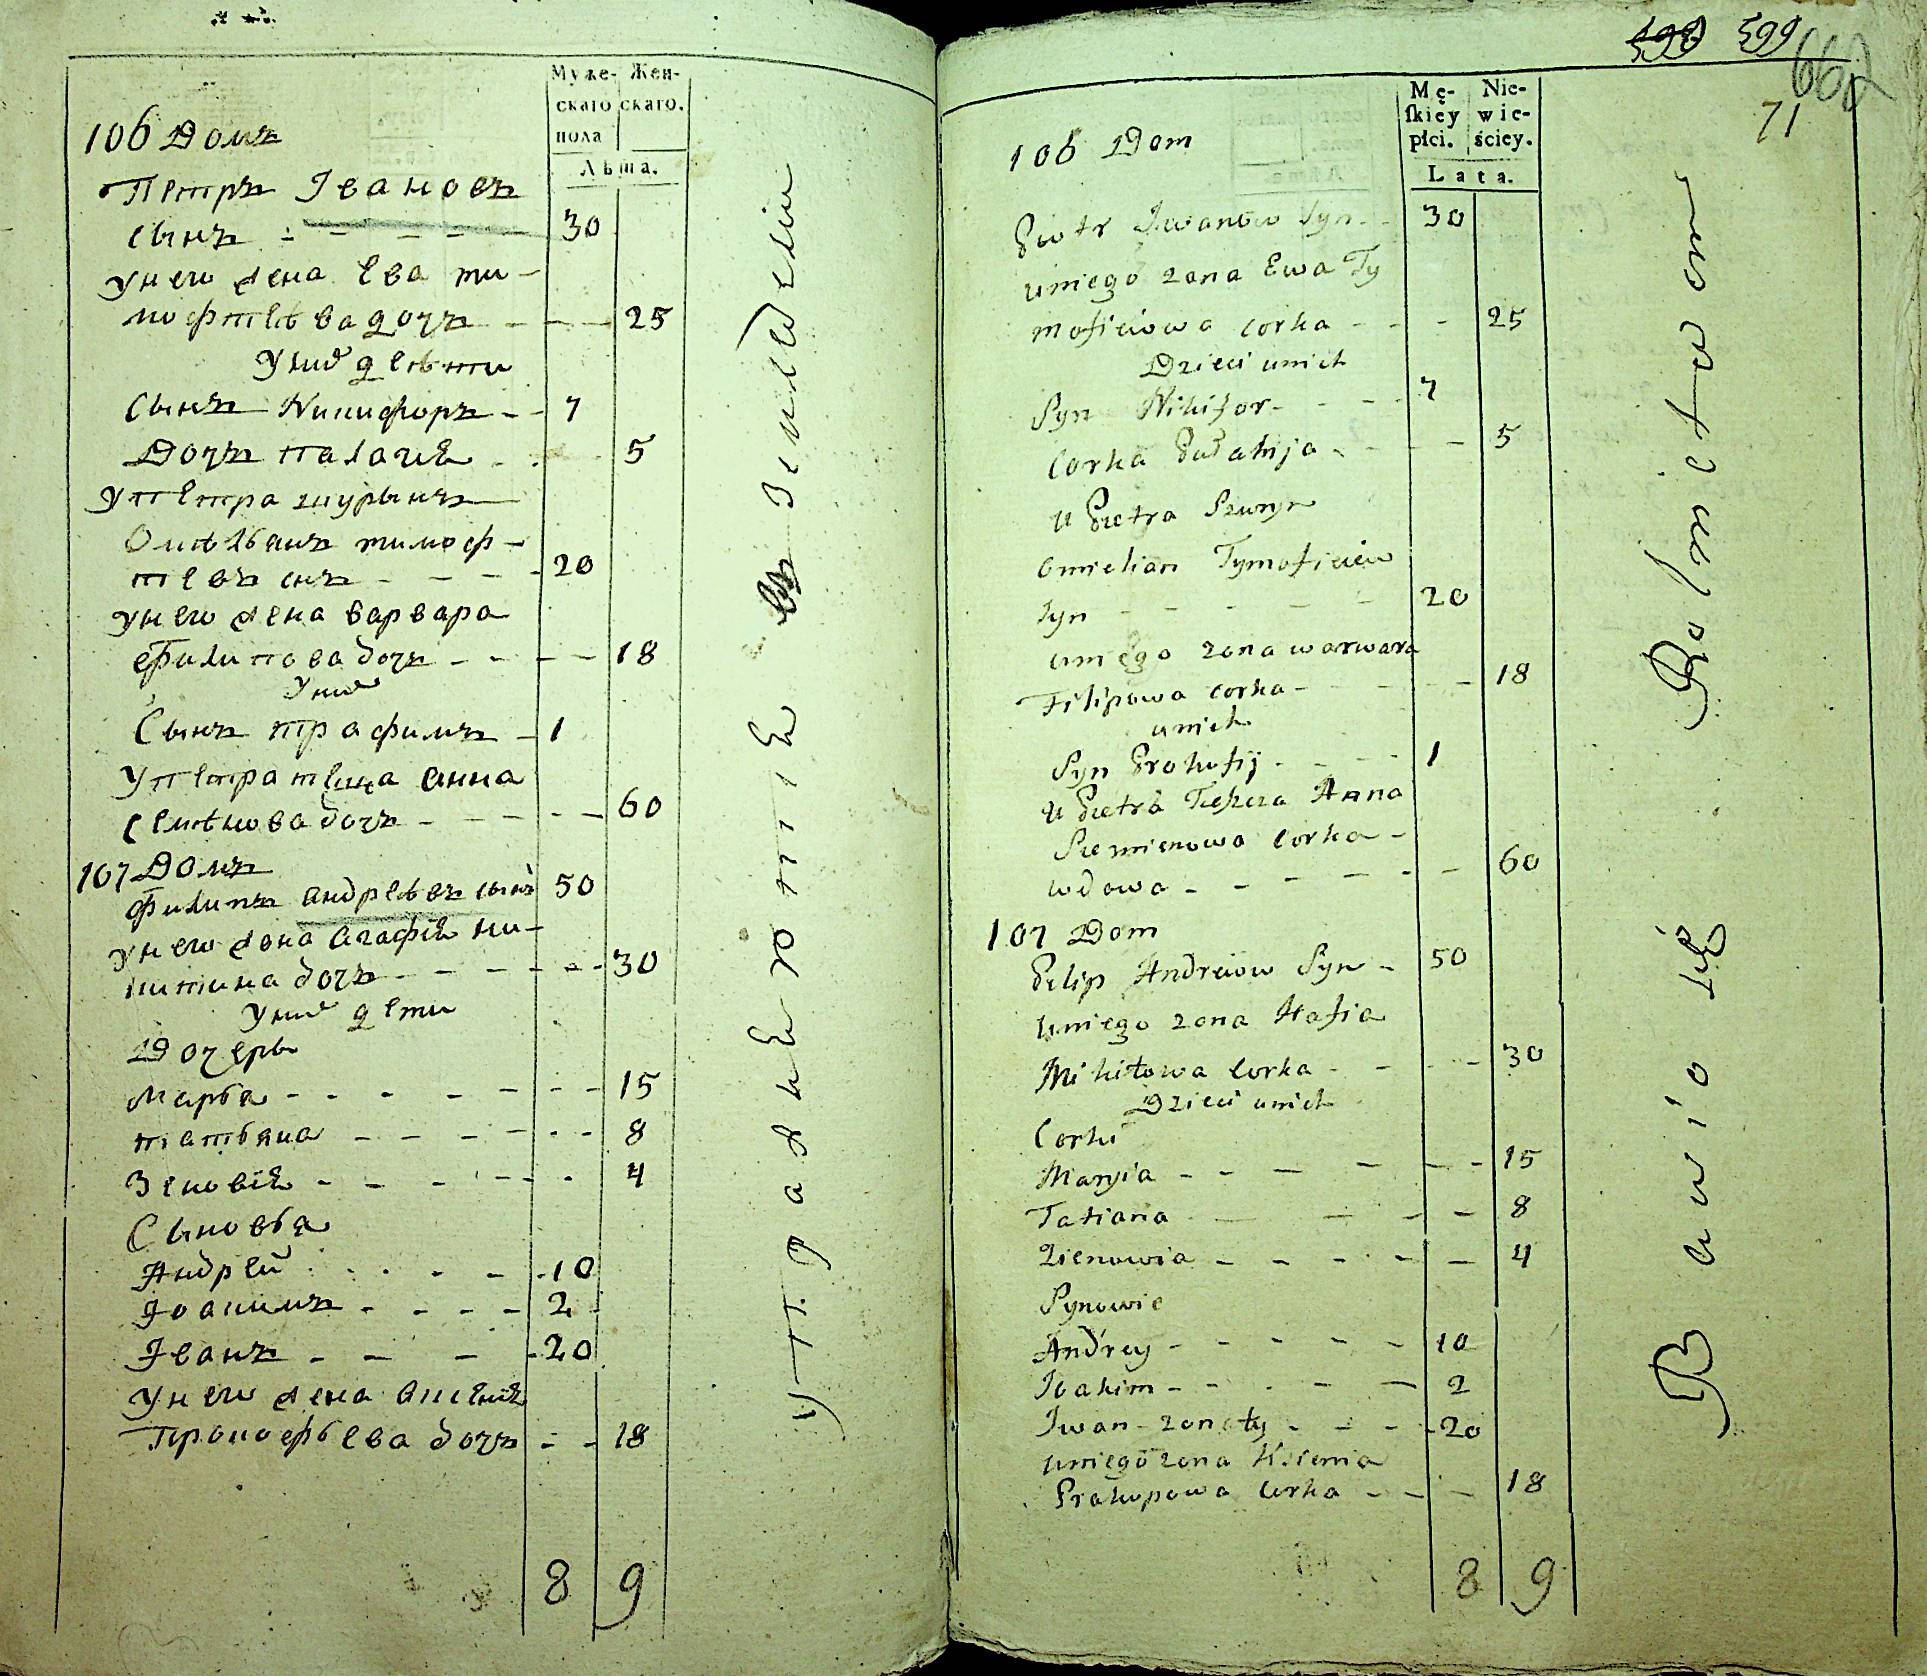 Муже-
скаго
пола
Жен-
скаго.
Лѣта.
106 Домъ
Петръ Івановъ
сынъ - - - - - 30
у него жена Ева ти-
мофѣева дочъ - - - 25
у ниⷯ дети
сынъ Никифоръ - - 7
дочъ палагиѣ - - - 5
у петра шурынъ
Омельянъ тимоф-
евъ снъ - - - - 20
у него жена варвара
филипова дочъ - - - - 18
у ниⷯ
Сынъ трафимъ - 1
у петра теща анна
семѣнова дочъ - - - - - 60
107 Домъ
Филипъ андрѣевъ сынъ 50
у него жена агафіѣ ни-
китина дочъ - - - - - - 30
у ниⷯ дети
дочеры
марья - - - - - - - 15
татьяна - - - - - - 8
Зеновіѣ - - - - - - 4
Сыновья
Андрей - - - - 10
Іоакимъ - - - - 2
Іванъ - - - - 20
у него жена аксеніѣ
Прокофьева дочъ - - 18
8 9
упражнѣютіѣ въ земледелии
598 599
662
71
Mę-
ſkiey
płci.
Nie-
wie-
ściey.
Lata.
106 Dom
Piotr Iwanow Syn - - 30
u niego zona Ewa Ty
mofieiowa corka - - - 25
Dzieci u nich
Syn Nikifor - - - - 7
Corka Pałahija - - - - 5
u Pietra Szuryn
Omielian Tymofieiew
Syn - - - - - 20
u niego zona warwara
Filipowa corka - - - - - 18
u nich
Syn Prokofij - - - - 1
u Pietra Tieszcza Anna
Siemienowa corka -
wdowa - - - - - - - 60
107 Dom
Filip Andreiow Syn - 50
u niego zona Hafia
Mikitowa corka - - - - 30
Dzieci u nich
Corki
Maryia - - - - - - 15
Tatiana - - - - 8
Zienowia - - - - - - 4
Synowie
Andrey - - - - - 10
Ioakim - - - - - 2
Iwan zonaty - - - - 20
u niego zona Ksienia
Prakopowa corka - - - 18
8 9
Bawio się Rolnictwem